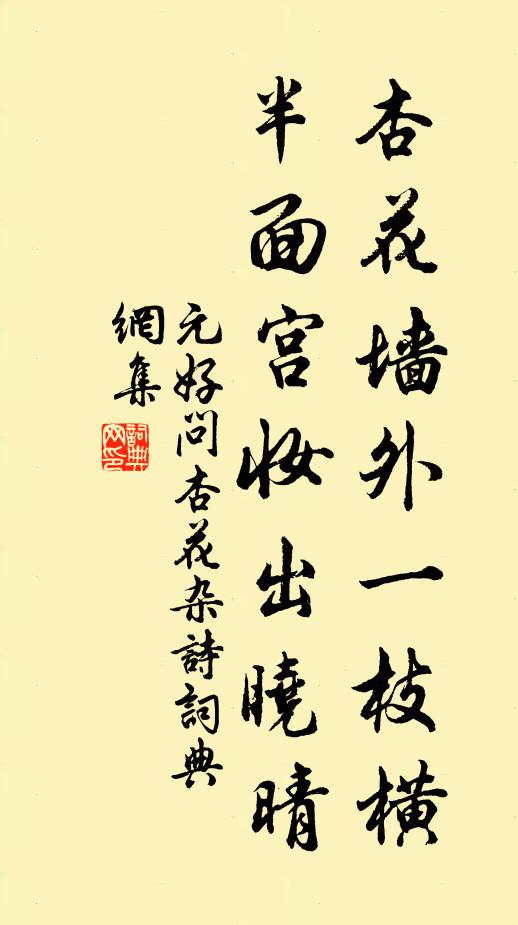 杏花墙外一枝横
半面宫妆出曉晴
元好问杏花杂詩詞典
網集
詞典网印